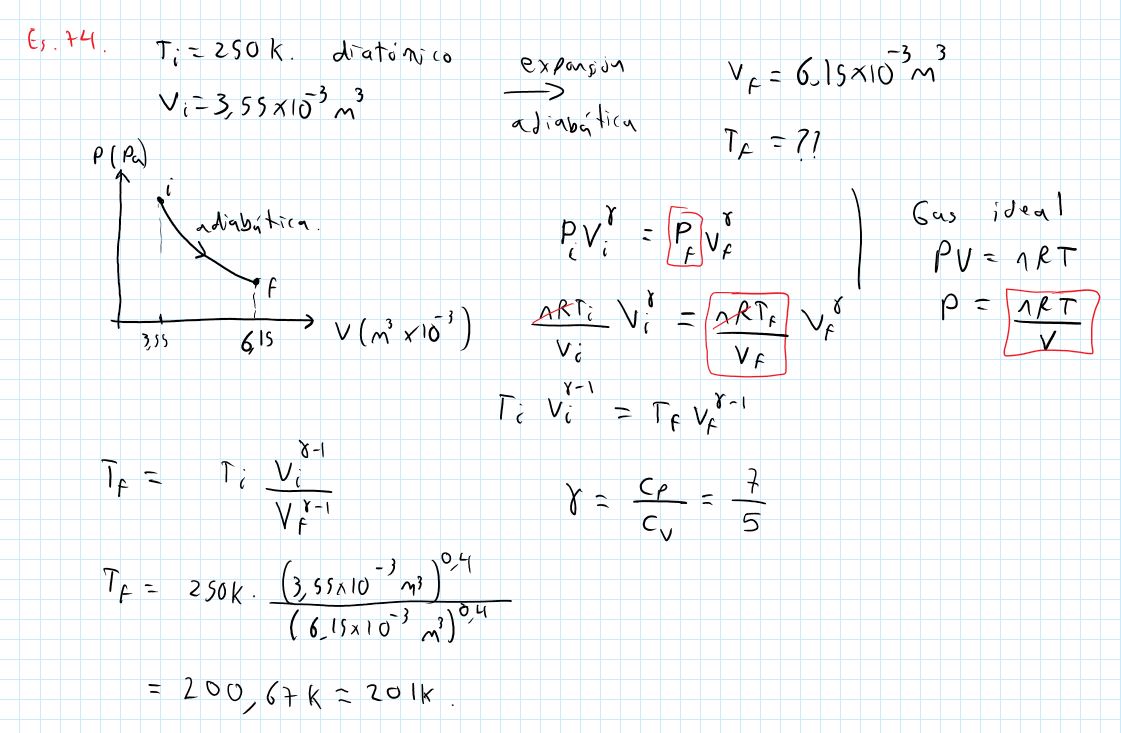 Es. 74.
Ti = 250 K. diatómico
Vi = 3,55 × 10⁻³ m³
expansión
adiabática
Vf = 6,15 × 10⁻³ m³
Tf = ??
P (Pa)
i
adiabática.
f
3,55
6,15
V (m³ × 10⁻³)
Pi Vi^γ = Pf Vf^γ
nRTi / Vi Vi^γ = nRTf / Vf Vf^γ
Ti Vi^γ-1 = Tf Vf^γ-1
Gas ideal
PV = nRT
P = nRT / V
Tf = Ti Vi^γ-1 / Vf^γ-1
γ = CP / CV = 7 / 5
Tf = 250 K. (3,55×10⁻³ m³)^0,4 / (6,15×10⁻³ m³)^0,4
= 200,67 K = 201 K.